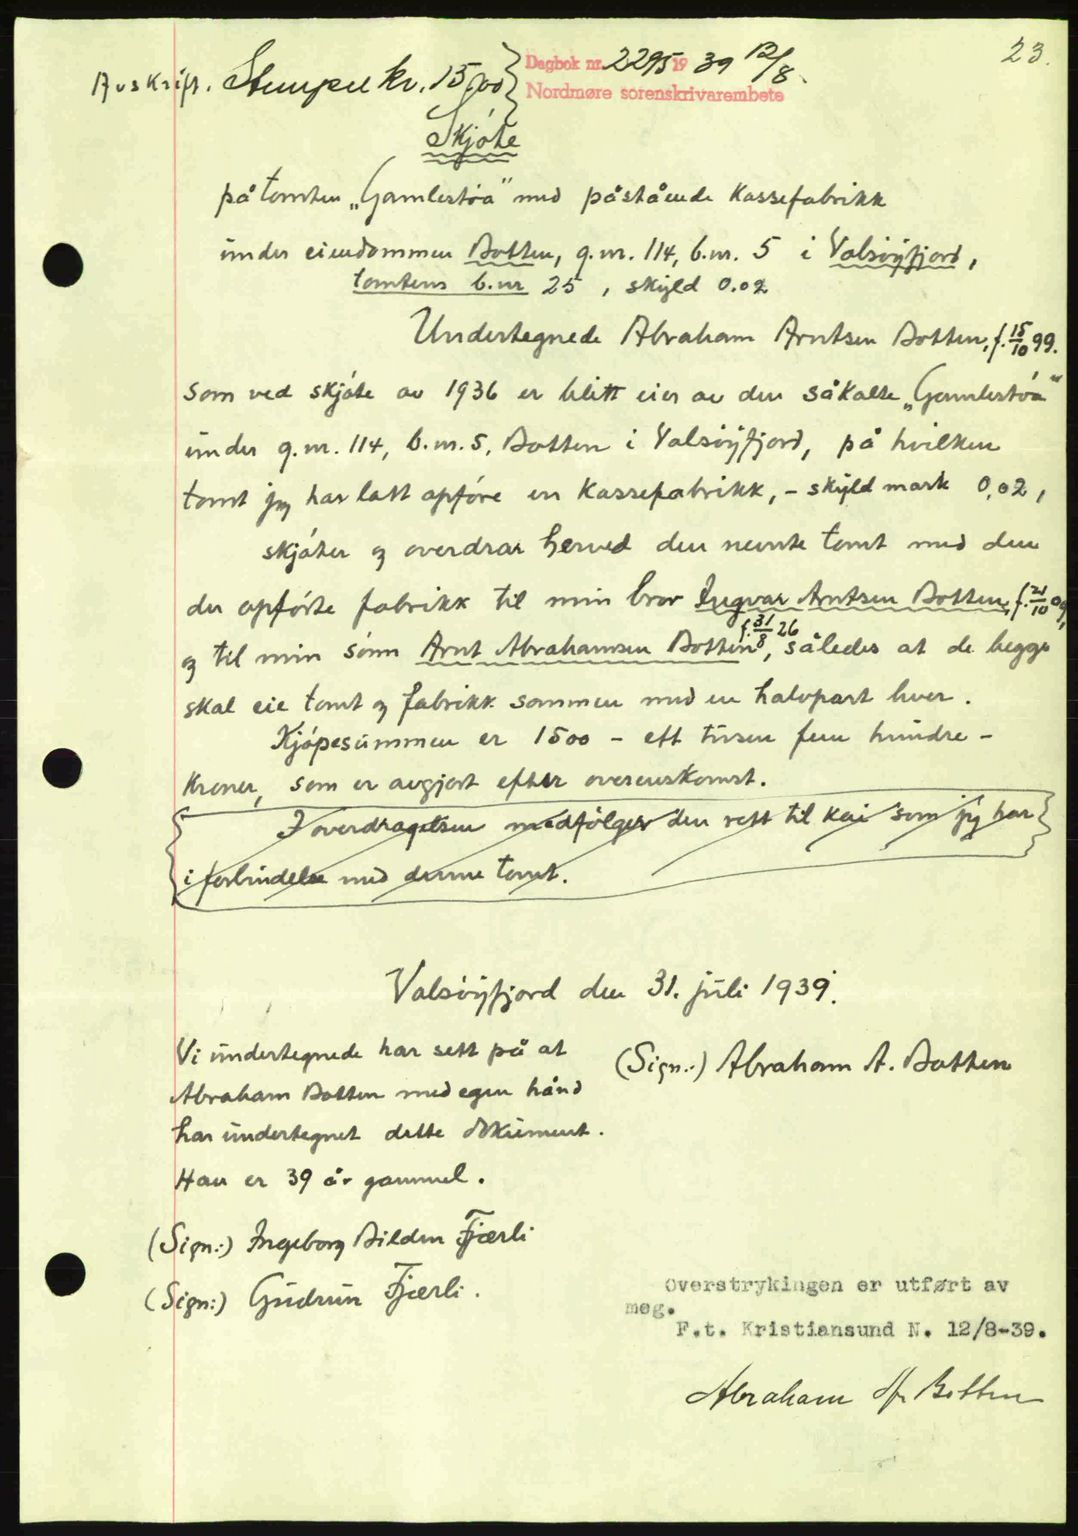 23.
Avskrift. Stempel kr. 15,00
Dagbok nr. 2295 19 39 12/8
Nordmøre sorenskrivarembete
Skjöte
på tomten „Gamlestöa" med påstående kassefabrikk
under eiendommen Botten, g.nr. 114, b.nr. 5 i Valsöyfjord,
tomtens b.nr 25, skyld 0.02
Undertegnede Abraham Arntsen Botten, f. 15/10 99.
som ved skjöte av 1936 er blitt eier av den såkalte „Gamlestöa"
under g.nr. 114, b.nr. 5, Botten i Valsöyfjord, på hvilken
tomt jeg har latt opföre en kassefabrikk, – skyld mark 0,02,
skjöter og overdrar herved den nevnte tomt med den
der opförte fabrikk til min bror Ingvar Arntsen Botten, f. 21/10 09,
og til min sönn Arnt Abrahamsen Botten f. 31/8 26, således at de begge
skal eie tomt og fabrikk sammen med en halvpart hver.
Kjöpesummen er 1500 – ett tusen fem hundre –
kroner, som er avgjort efter overenskomst.
I overdragelsen medfölger den rett til kai som jeg har
i forbindelse med denne tomt.
Valsöyfjord den 31. juli 1939.
Vi undertegnede har sett på at
Abraham Botten med egen hånd
har undertegnet dette dokument.
Han er 39 år gammel.
(Sign.:) Abraham A. Botten
(Sign:) Ingeborg Bilden Fjærli
(Sign:) Gudrun Fjærli.
Overstrykingen er utført av
meg.
F.t. Kristiansund N. 12/8-39.
Abraham Botten